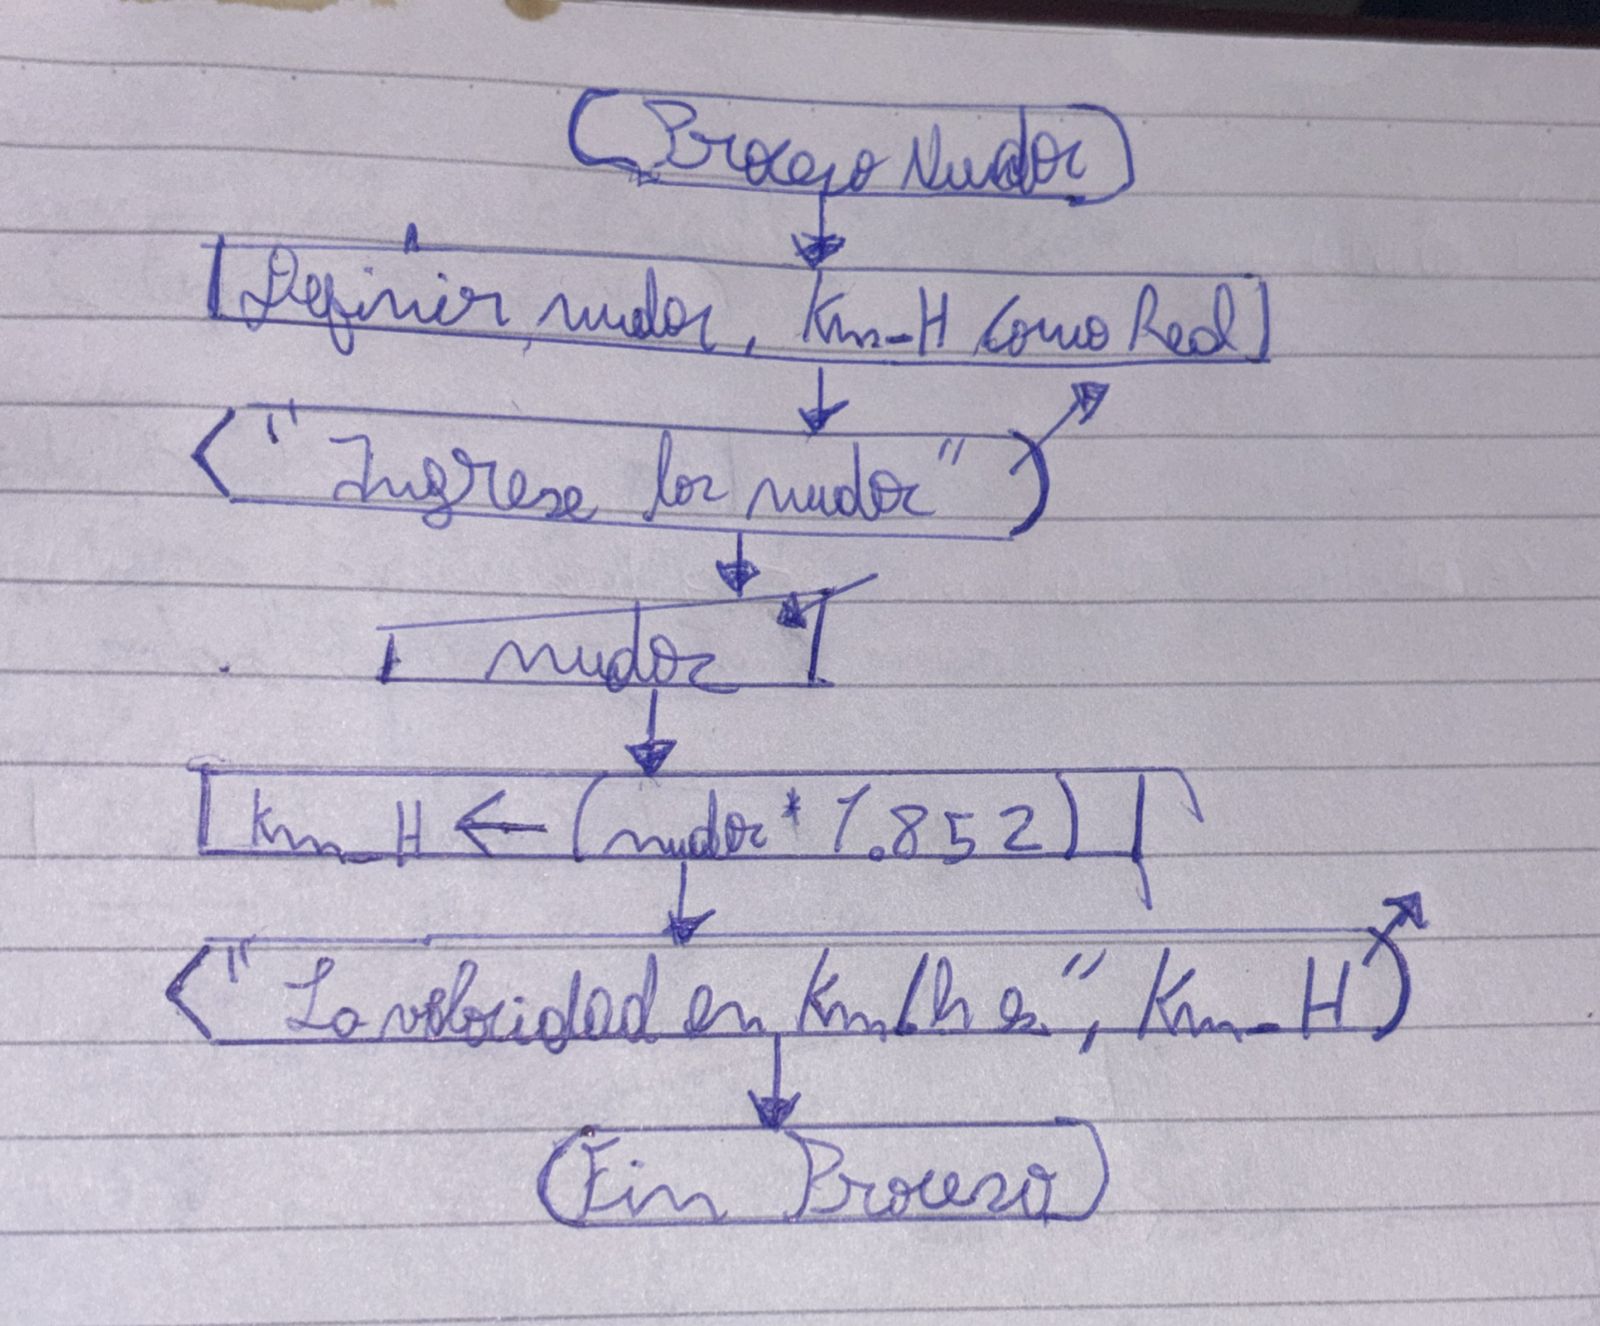 Proceso Nudos
Definir nudos, Km_H Como Real
"Ingrese los nudos"
nudos
Km_H ← (nudos * 1.852)
"La velocidad en Km/h es", Km_H
Fin Proceso